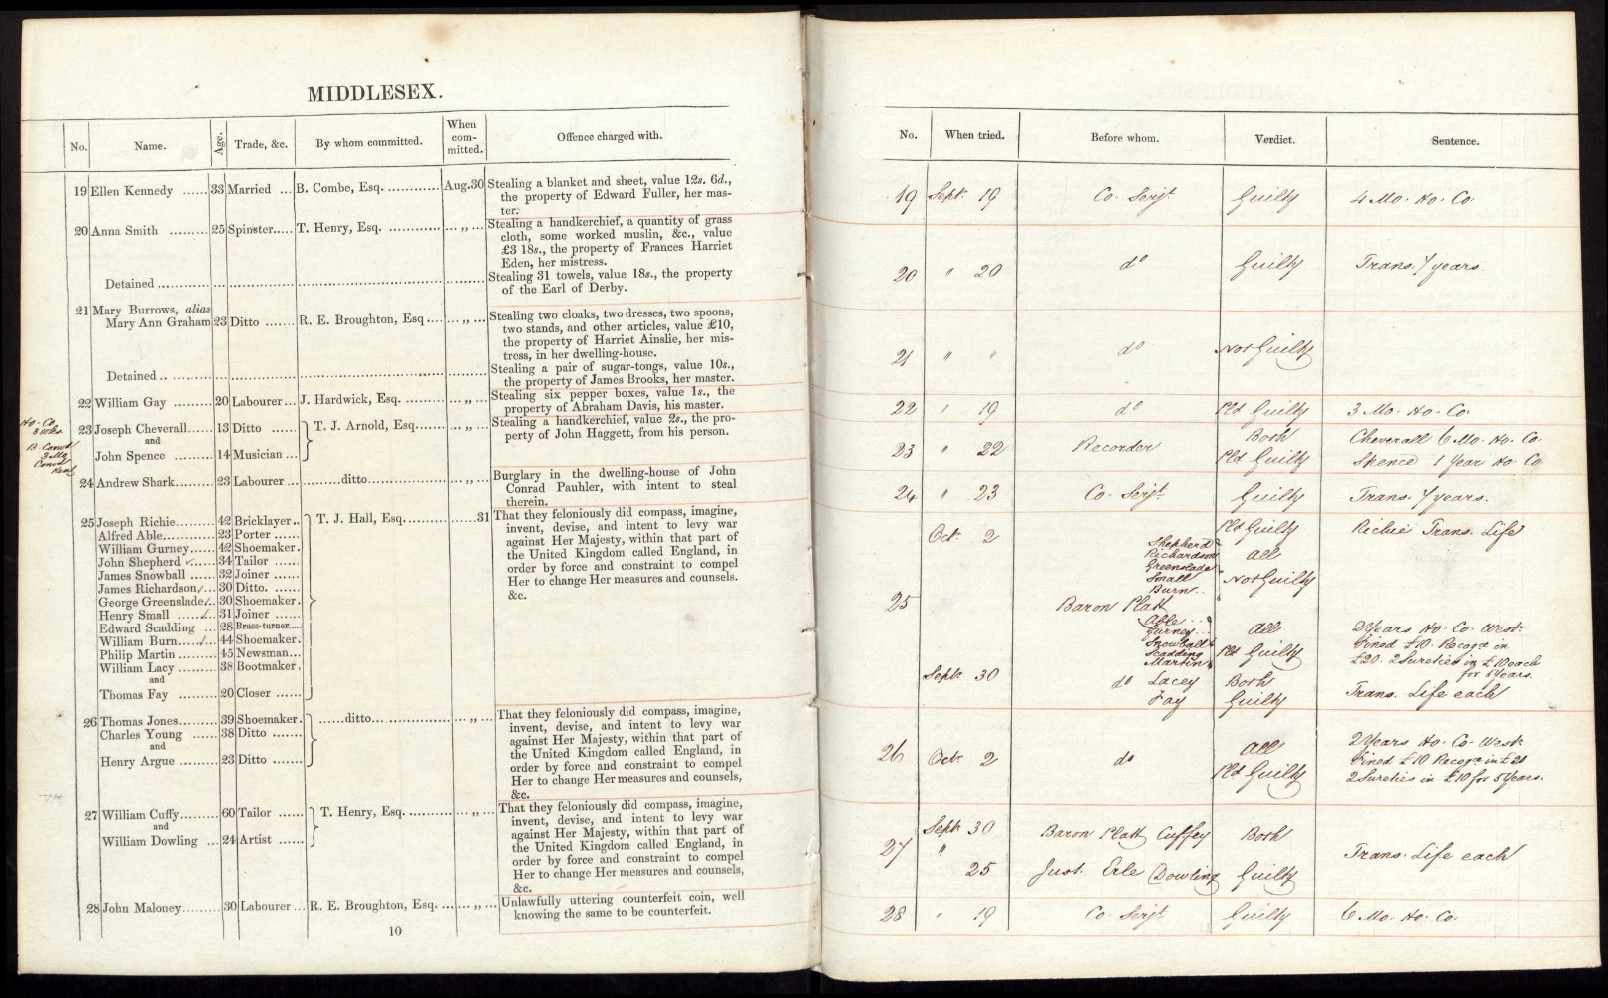 MIDDLESEX.
No. Name. Age. Trade, &c. By whom committed. When com-mitted. Offence charged with.
19 Ellen Kennedy ...... 33 Married ... B. Combe, Esq. ............ Aug.30 Stealing a blanket and sheet, value 12s. 6d.,
the property of Edward Fuller, her mas-
ter.
20 Anna Smith ......... 25 Spinster..... T. Henry, Esq. ............ ... „ ... Stealing a handkerchief, a quantity of grass
cloth, some worked muslin, &c., value
£3 18s., the property of Frances Harriet
Eden, her mistress.
Detained ............ Stealing 31 towels, value 18s., the property
of the Earl of Derby.
21 Mary Burrows, alias
Mary Ann Graham 23 Ditto ....... R. E. Broughton, Esq .... ... „ ... Stealing two cloaks, two dresses, two spoons,
two stands, and other articles, value £10,
the property of Harriet Ainslie, her mis-
tress, in her dwelling-house.
Detained ............ Stealing a pair of sugar-tongs, value 10s.,
the property of James Brooks, her master.
22 William Gay ......... 20 Labourer... J. Hardwick, Esq. ......... ... „ ... Stealing six pepper boxes, value 1s., the
property of Abraham Davis, his master.
Ho. Co.
3 Wks
23 Joseph Cheverall..... 13 Ditto ...... T. J. Arnold, Esq....... ... „ ... Stealing a handkerchief, value 2s., the pro-
perty of John Haggett, from his person.
and
John Spence ......... 14 Musician ...
24 Andrew Shark........ 23 Labourer ... .........ditto.................. ... „ ... Burglary in the dwelling-house of John
Conrad Pauhler, with intent to steal
therein.
25 Joseph Richie......... 42 Bricklayer.. T. J. Hall, Esq.......... ......31 That they feloniously did compass, imagine,
Alfred Able............ 23 Porter ...... invent, devise, and intent to levy war
William Gurney...... 42 Shoemaker. against Her Majesty, within that part of
John Shepherd ✓..... 34 Tailor ...... the United Kingdom called England, in
James Snowball ...... 32 Joiner ...... order by force and constraint to compel
James Richardson✓... 30 Ditto. ...... Her to change Her measures and counsels.
George Greenslade✓.. 30 Shoemaker. &c.
Henry Small ......✓ 31 Joiner ......
Edward Scadding ... 28 Brass-turner.....
William Burn.....✓... 44 Shoemaker.
Philip Martin ......... 45 Newsman...
William Lacy ......... 38 Bootmaker.
and
Thomas Fay ......... 20 Closer ......
26 Thomas Jones......... 39 Shoemaker. ......ditto.................. ... „ ... That they feloniously did compass, imagine,
Charles Young ...... 38 Ditto ....... invent, devise, and intent to levy war
and against Her Majesty, within that part of
Henry Argue ......... 23 Ditto ....... the United Kingdom called England, in
order by force and constraint to compel
Her to change Her measures and counsels,
&c.
27 William Cuffy......... 60 Tailor ...... T. Henry, Esq. ............ ... „ ... That they feloniously did compass, imagine,
and invent, devise, and intent to levy war
William Dowling ... 24 Artist ...... against Her Majesty, within that part of
the United Kingdom called England, in
order by force and constraint to compel
Her to change Her measures and counsels,
&c.
28 John Maloney......... 30 Labourer ... R. E. Broughton, Esq. ... ... „ ... Unlawfully uttering counterfeit coin, well
knowing the same to be counterfeit.
10
No. When tried. Before whom. Verdict. Sentence.
19 Sept. 19 Co. Serjt. Guilty 4 Mo. Ho. Co.
20 " 20 do Guilty Trans. 7 years.
21 " " do Not Guilty
22 " 19 do Pld Guilty 3 Mo. Ho. Co.
23 " 22 Recorder Both Cheverall 6 Mo. Ho. Co.
Pld Guilty Spence 1 Year Ho. Co.
24 " 23 Co. Serjt. Guilty Trans. 7 years.
Oct. 2 Pld Guilty Richie Trans. Life
Shepherd
Richardson All
Greenslade
Small Not Guilty
Burn
25 Baron Platt
Able
Gurney All 2 Years Ho. Co. West.
Snowball Fined £10. Recogce in
Scadding Pld Guilty £20. 2 Sureties in £10 each
Martin for 5 Years.
Sept. 30 do Lacey Both Trans. Life each
Fay Guilty
26 Oct. 2 do All 2 Years Ho. Co. West.
Pld Guilty Fined £10 Recogce in £20
2 Sureties in £10 for 5 Years.
27 Sept. 30 Baron Platt Cuffey Both
Trans. Life each
" 25 Just. Erle Dowling Guilty
28 " 19 Co. Serjt. Guilty 6 Mo. Ho. Co.